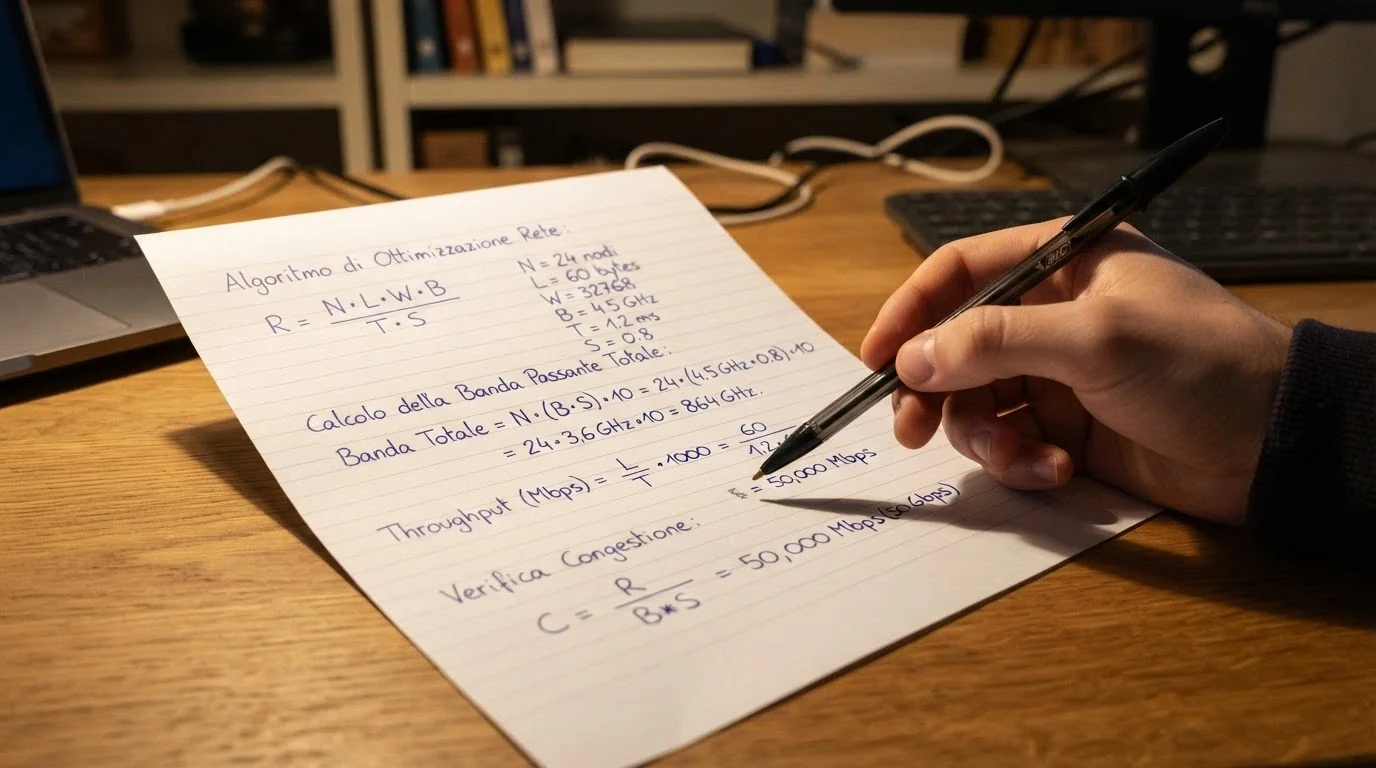 Algoritmo di Ottimizzazione Rete:
R = N·L·W·B / T·S
N = 24 nodi
L = 60 bytes
W = 32768
B = 4.5 GHz
T = 1.2 ms
S = 0.8
Calcolo della Banda Passante Totale:
Banda Totale = N·(B·S)·10 = 24·(4.5 GHz·0.8)·10
= 24·3.6 GHz·10 = 864 GHz.
Throughput (Mbps) = L/T · 1000 = 60/1.2
= 50,000 Mbps
Verifica Congestione:
C = R / B*S = 50,000 Mbps (50 Gbps)
BIC